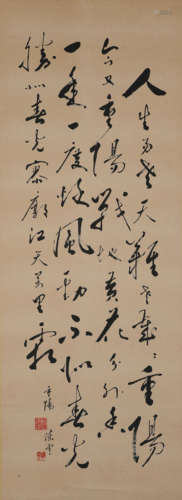 人生易老天難老歲〻重陽
今又重陽戰地黄花分外香
一年一度秋風勁不似春光
勝似春光寥廓江天萬里霜
重陽
陳雲